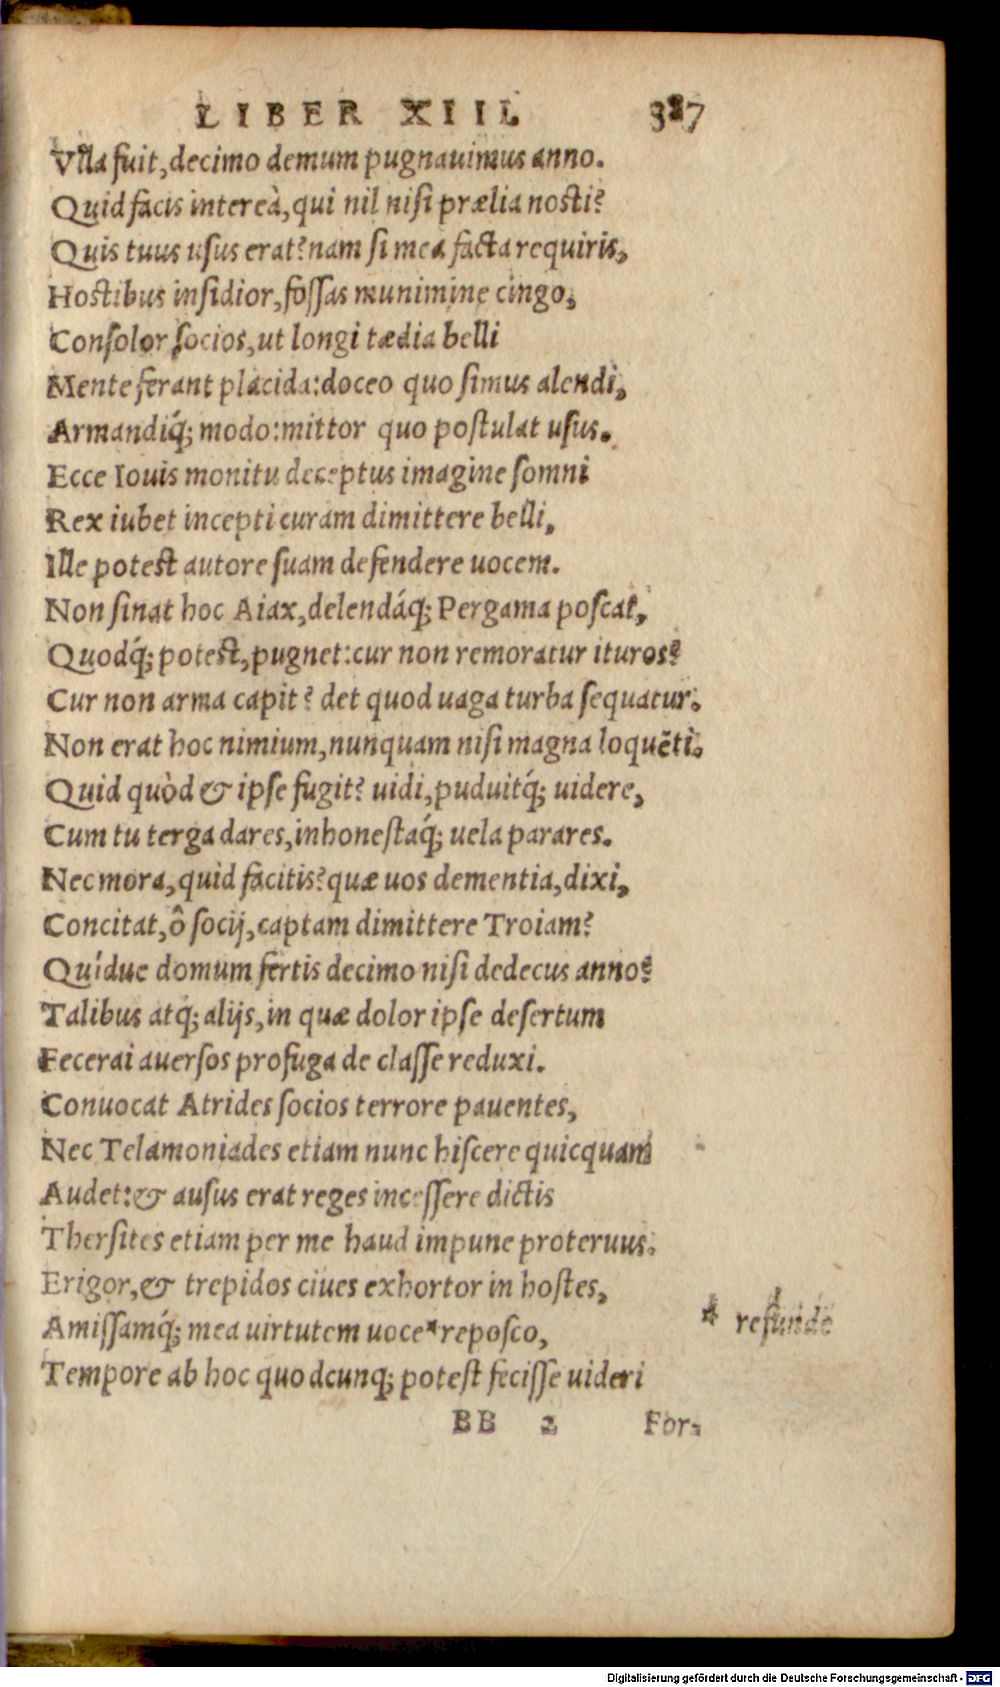 LIBER XIII. 387
Vlla fuit, decimo demum pugnauimus anno.
Quid facis intereà, qui nil nisi prælia nosti?
Quis tuus usus erat? nam si mea facta requiris,
Hostibus insidior, fossas munimine cingo,
Consolor socios, ut longi tædia belli
Mente ferant placida: doceo quo simus alendi,
Armandiq́; modo: mittor quo postulat usus.
Ecce Iouis monitu deceptus imagine somni
Rex iubet incepti curam dimittere belli,
Ille potest autore suam defendere uocem.
Non sinat hoc Aiax, delendáq; Pergama poscat,
Quodq́; potest, pugnet: cur non remoratur ituros?
Cur non arma capit? det quod uaga turba sequatur.
Non erat hoc nimium, nunquam nisi magna loquẽti.
Quid quòd & ipse fugit? uidi, puduitq́; uidere,
Cum tu terga dares, inhonestaq́; uela parares.
Nec mora, quid facitis? quæ uos dementia, dixi,
Concitat, ô socij, captam dimittere Troiam?
Quídue domum fertis decimo nisi dedecus anno?
Talibus atq; alijs, in quæ dolor ipse desertum
Fecerai auersos profuga de classe reduxi.
Conuocat Atrides socios terrore pauentes,
Nec Telamoniades etiam nunc hiscere quicquam
Audet: & ausus erat reges incessere dictis
Thersites etiam per me haud impune proteruus.
Erigor, & trepidos ciues exhortor in hostes,
Amissamq́; mea uirtutem uoce * reposco, * refundo
Tempore ab hoc quodcunq; potest fecisse uideri
BB 2 For-
Digitalisierung gefördert durch die Deutsche Forschungsgemeinschaft - DFG